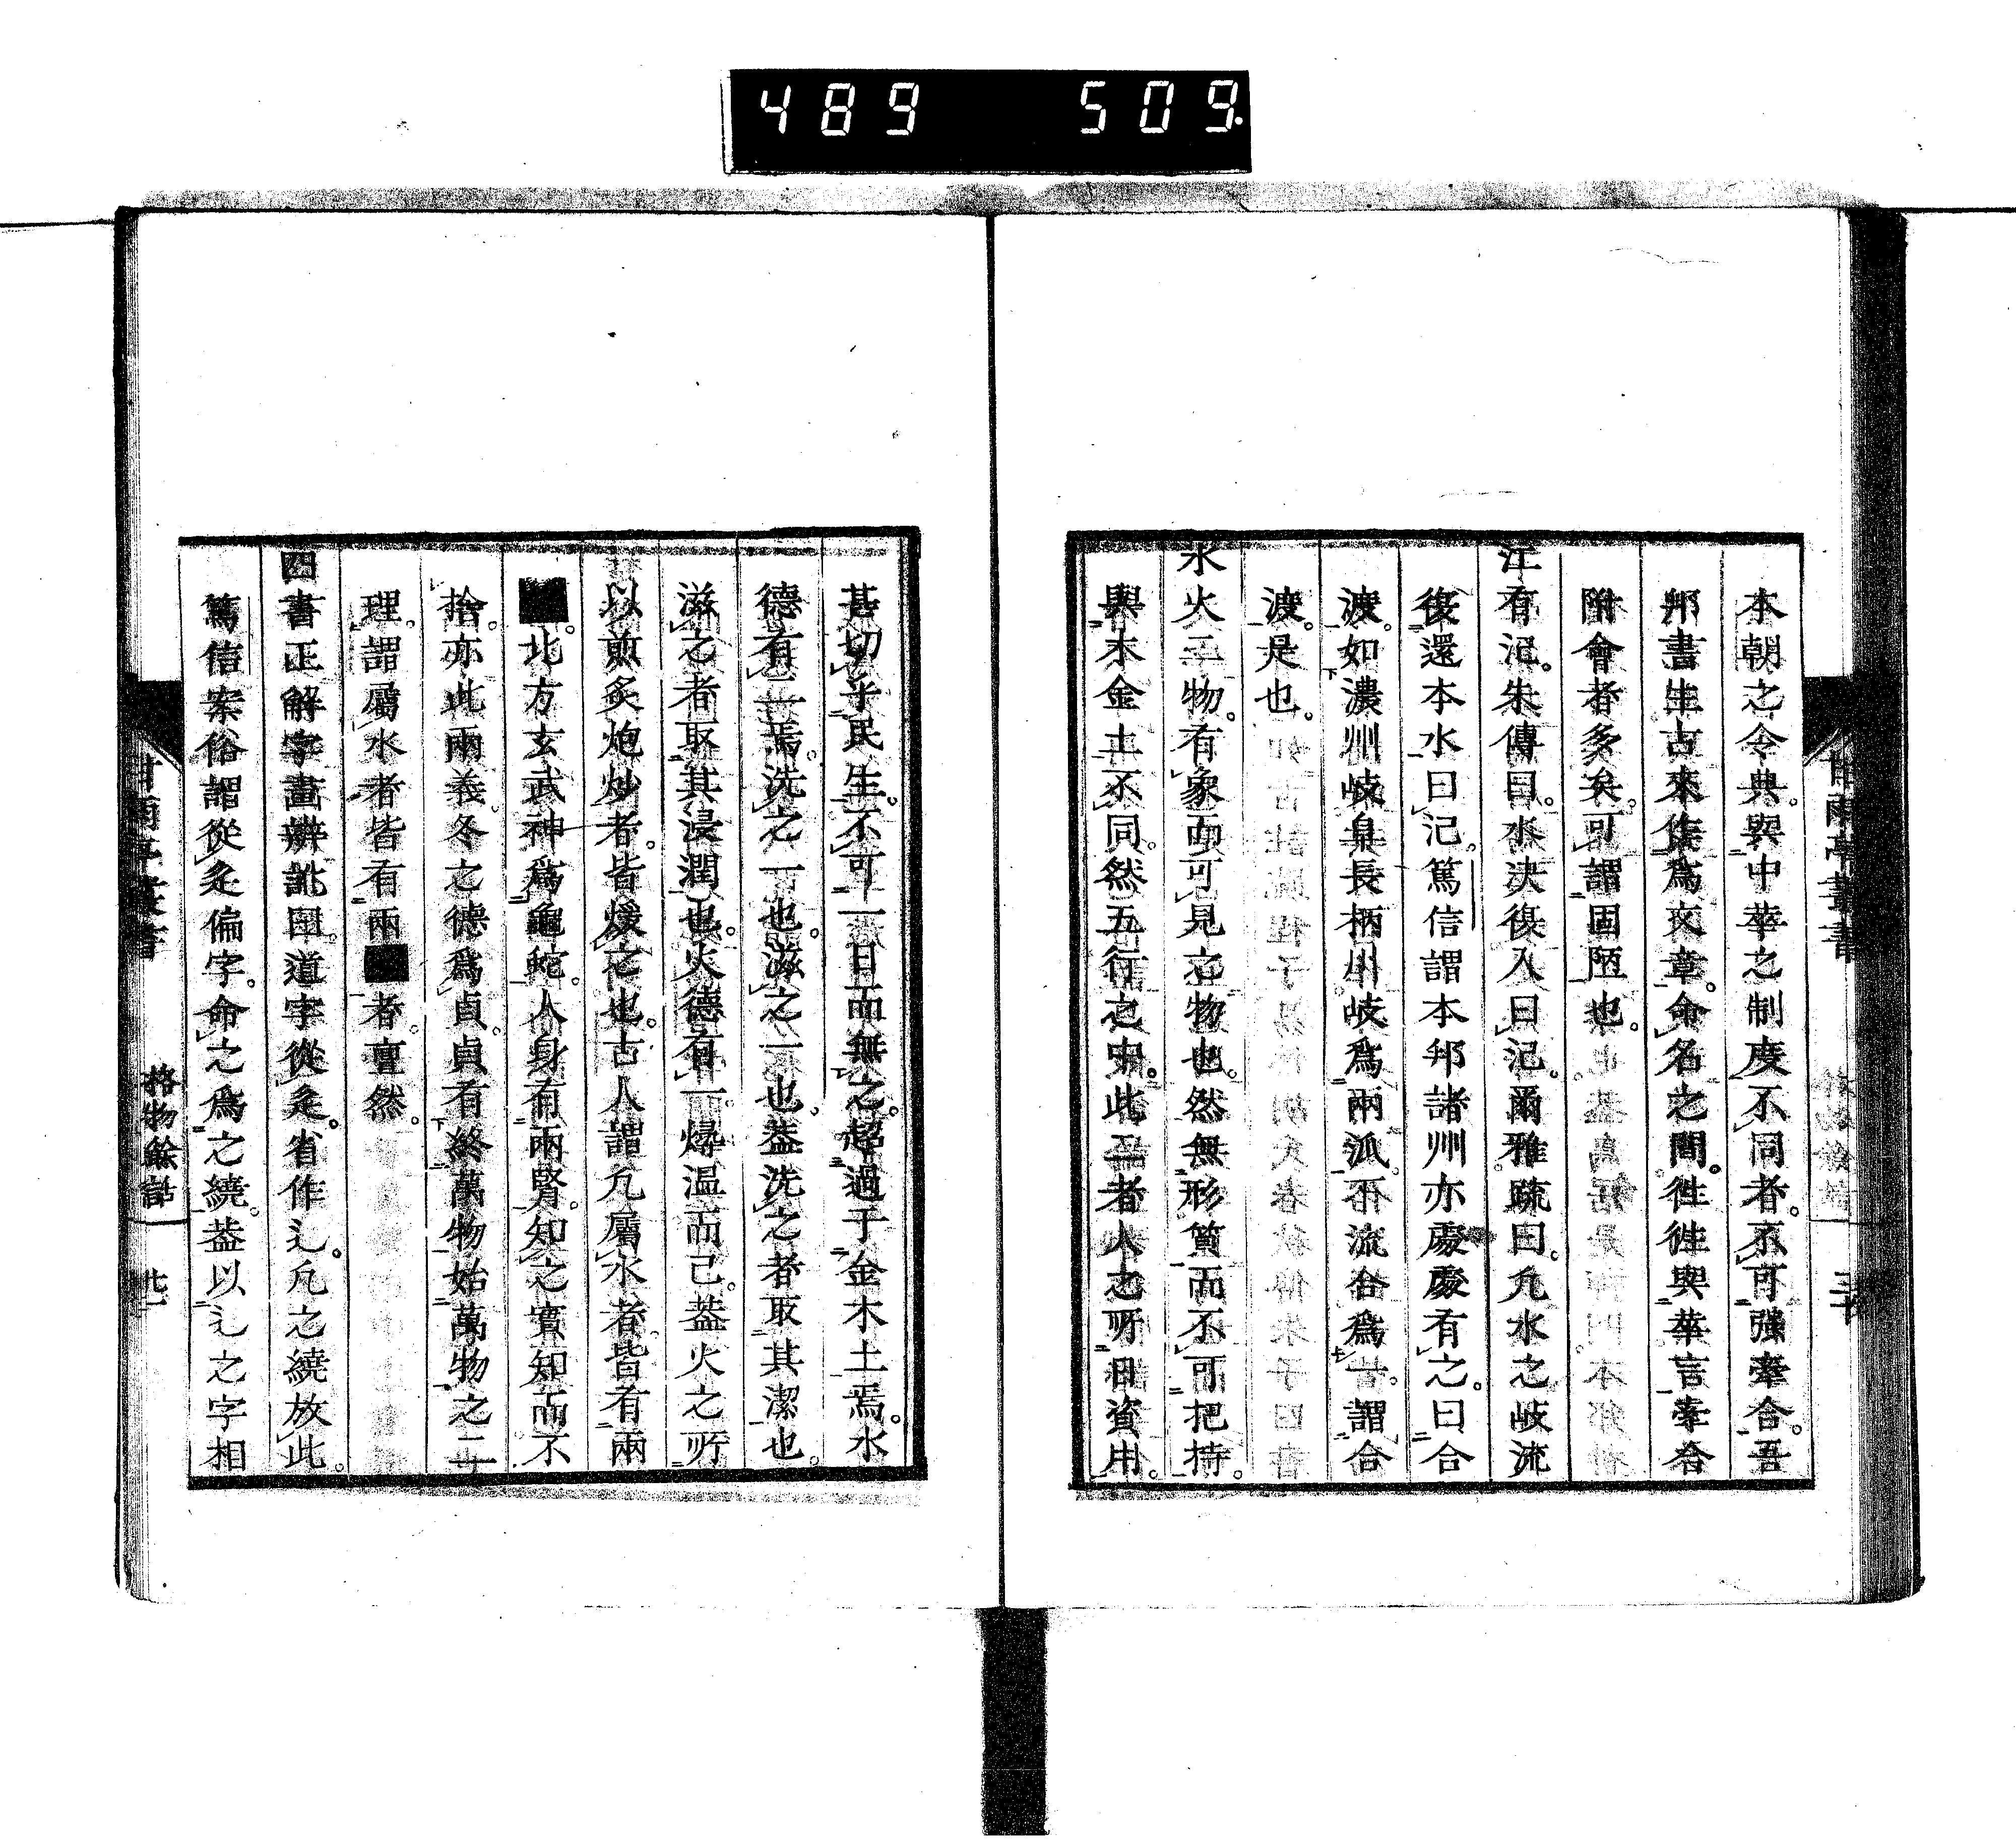 489 509
本朝之令典。與中華之制度不同者。不可強牽合。吾
邦書生古來作爲文章。命名之間。徃徃與華言牽合
附會者多矣。可謂固陋也。
江有汜。朱傳曰。水決復入曰汜。爾雅疏曰。凡水之岐流
復還本水曰汜。篤信謂本邦諸州亦處處有之。曰合
渡。如濃州岐阜長柄川岐爲兩派。下流合爲一。謂合
渡。是也。
水火二物。有象而可見之物也。然無形質而不可把持。
與木金土不同。然五行之中。此二者人之所日資用。
甚切乎民生。不可一日而無之。超過于金木土焉。水
德有二焉。洗之一也。滋之一也。蓋洗之者取其潔也。
滋之者取其浸潤也。火德有一。燥温而已。蓋火之所
以煎炙炮炒者。皆煖之也。古人謂凡屬水者。皆有兩
■。北方玄武神爲龜蛇。人身有兩腎。知之實知而不
捨。亦此兩義。冬之德爲貞。貞有終萬物始萬物之二
理。謂屬水者皆有兩■者。亶然。
四書正解字畫辨訛曰。道字從辵。省作辶。凡之繞放此。
篤信案俗謂從辵偏字。命之爲之繞。蓋以辶之字相
甘雨亭叢書
格物餘話
甘雨亭叢書